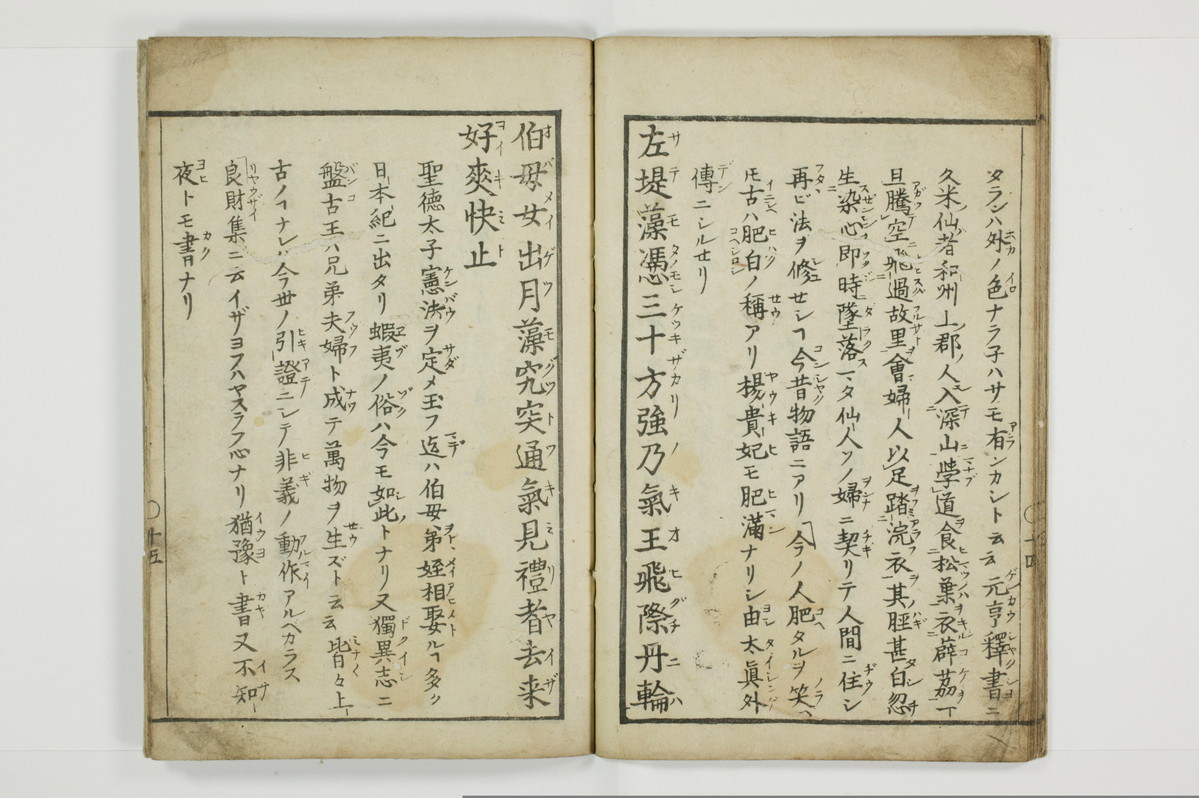 タランハ外ノ色ナラ子ハサモ有ンカシト云云 元亨釋書ニ
久米仙者和州上郡ノ人入深山學道食松葉衣薜茘一
旦騰空飛過故里會婦人以足踏浣衣其脛甚白忽
生染心即時墜落マタ仙人ソノ婦ニ契リテ人間ニ住シ
再ビ法ヲ修セシヿ今昔物語ニアリ今ノ人肥タルヲ笑
𪜈古ハ肥白ノ稱アリ楊貴妃モ肥滿ナリシ由太眞外
傳ニシルせリ
左堤藻憑三十方強乃氣王飛際丹輪
伯母女出月藻究突通氣見禮者去来
好爽快止
聖德太子憲法ヲ定メ玉フ迄ハ伯母弟姪相娶ルヿ多ク
日本紀ニ出タリ蝦夷ノ俗ハ今モ如此トナリ又獨異志ニ
盤古王ハ兄弟夫婦ト成テ萬物ヲ生ズト云云皆々上
古ノヿナレハ今世ノ引證ニシテ非義ノ動作アルヘカラス
良財集ニ云イザヨフハヤスラフ心ナリ猶豫ト書又不知
夜トモ書ナリ
十四
十五